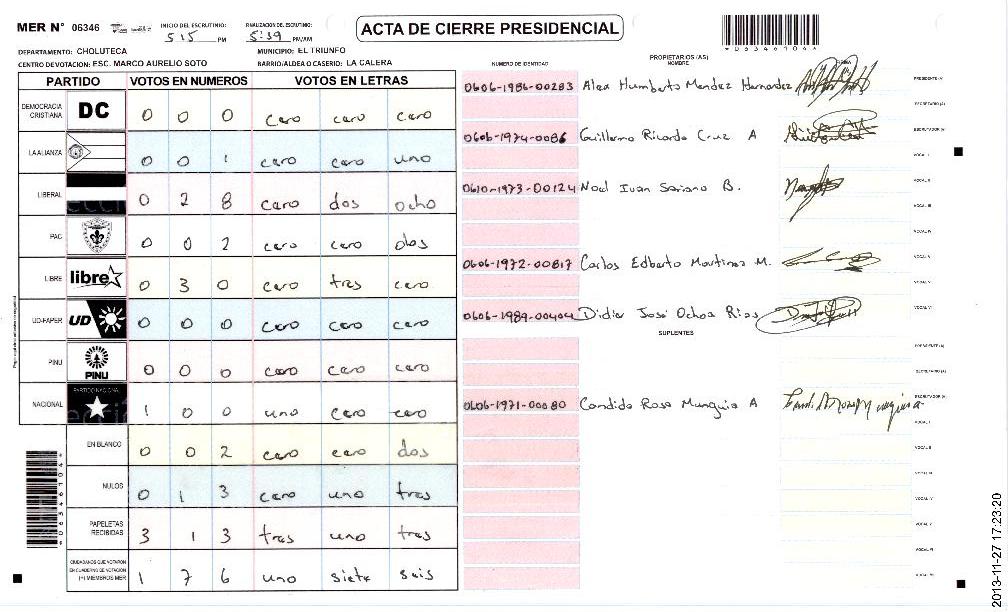 MER N° 06346
INICIO DEL ESCRUTINIO: 5:15 PM
FINALIZACION DEL ESCRUTINIO: 5:39 PM/AM
ACTA DE CIERRE PRESIDENCIAL
DEPARTAMENTO: CHOLUTECA
MUNICIPIO: EL TRIUNFO
CENTRO DE VOTACION: ESC. MARCO AURELIO SOTO
BARRIO/ALDEA O CASERIO: LA CALERA
PARTIDO VOTOS EN NUMEROS VOTOS EN LETRAS
DEMOCRACIA CRISTIANA DC 0 0 0 cero cero cero
LA ALIANZA 0 0 1 cero cero uno
LIBERAL 0 2 8 cero dos ocho
PAC 0 0 2 cero cero dos
LIBRE libre 0 3 0 cero tres cero
UD-FAPER UD 0 0 0 cero cero cero
PINU PINU 0 0 0 cero cero cero
NACIONAL PARTIDO NACIONAL 1 0 0 uno cero cero
EN BLANCO 0 0 2 cero cero dos
NULOS 0 1 3 cero uno tres
PAPELETAS RECIBIDAS 3 1 3 tres uno tres
CIUDADANOS QUE VOTARON
EN CUADERNO DE VOTACION
(+) MIEMBROS MER 1 7 6 uno siete seis
NUMERO DE IDENTIDAD
PROPIETARIOS (AS)
NOMBRE
FIRMA
0606-1986-00283 Alex Humberto Mendez Hernandez PRESIDENTE (A)
SECRETARIO (A)
0606-1974-0086 Guillermo Ricardo Cruz A ESCRUTADOR (A)
VOCAL I
0610-1973-00124 Noel Ivan Soriano B. VOCAL II
VOCAL III
VOCAL IV
0606-1972-00817 Carlos Edberto Martinez M. VOCAL V
0606-1989-00404 Didier José Ochoa Rios
SUPLENTES
PRESIDENTE (A)
SECRETARIO (A)
0606-1971-00080 Candida Rosa Munguia A ESCRUTADOR (A)
VOCAL I
VOCAL II
VOCAL III
VOCAL IV
VOCAL V
VOCAL VI
2013-11-27 17:23:20